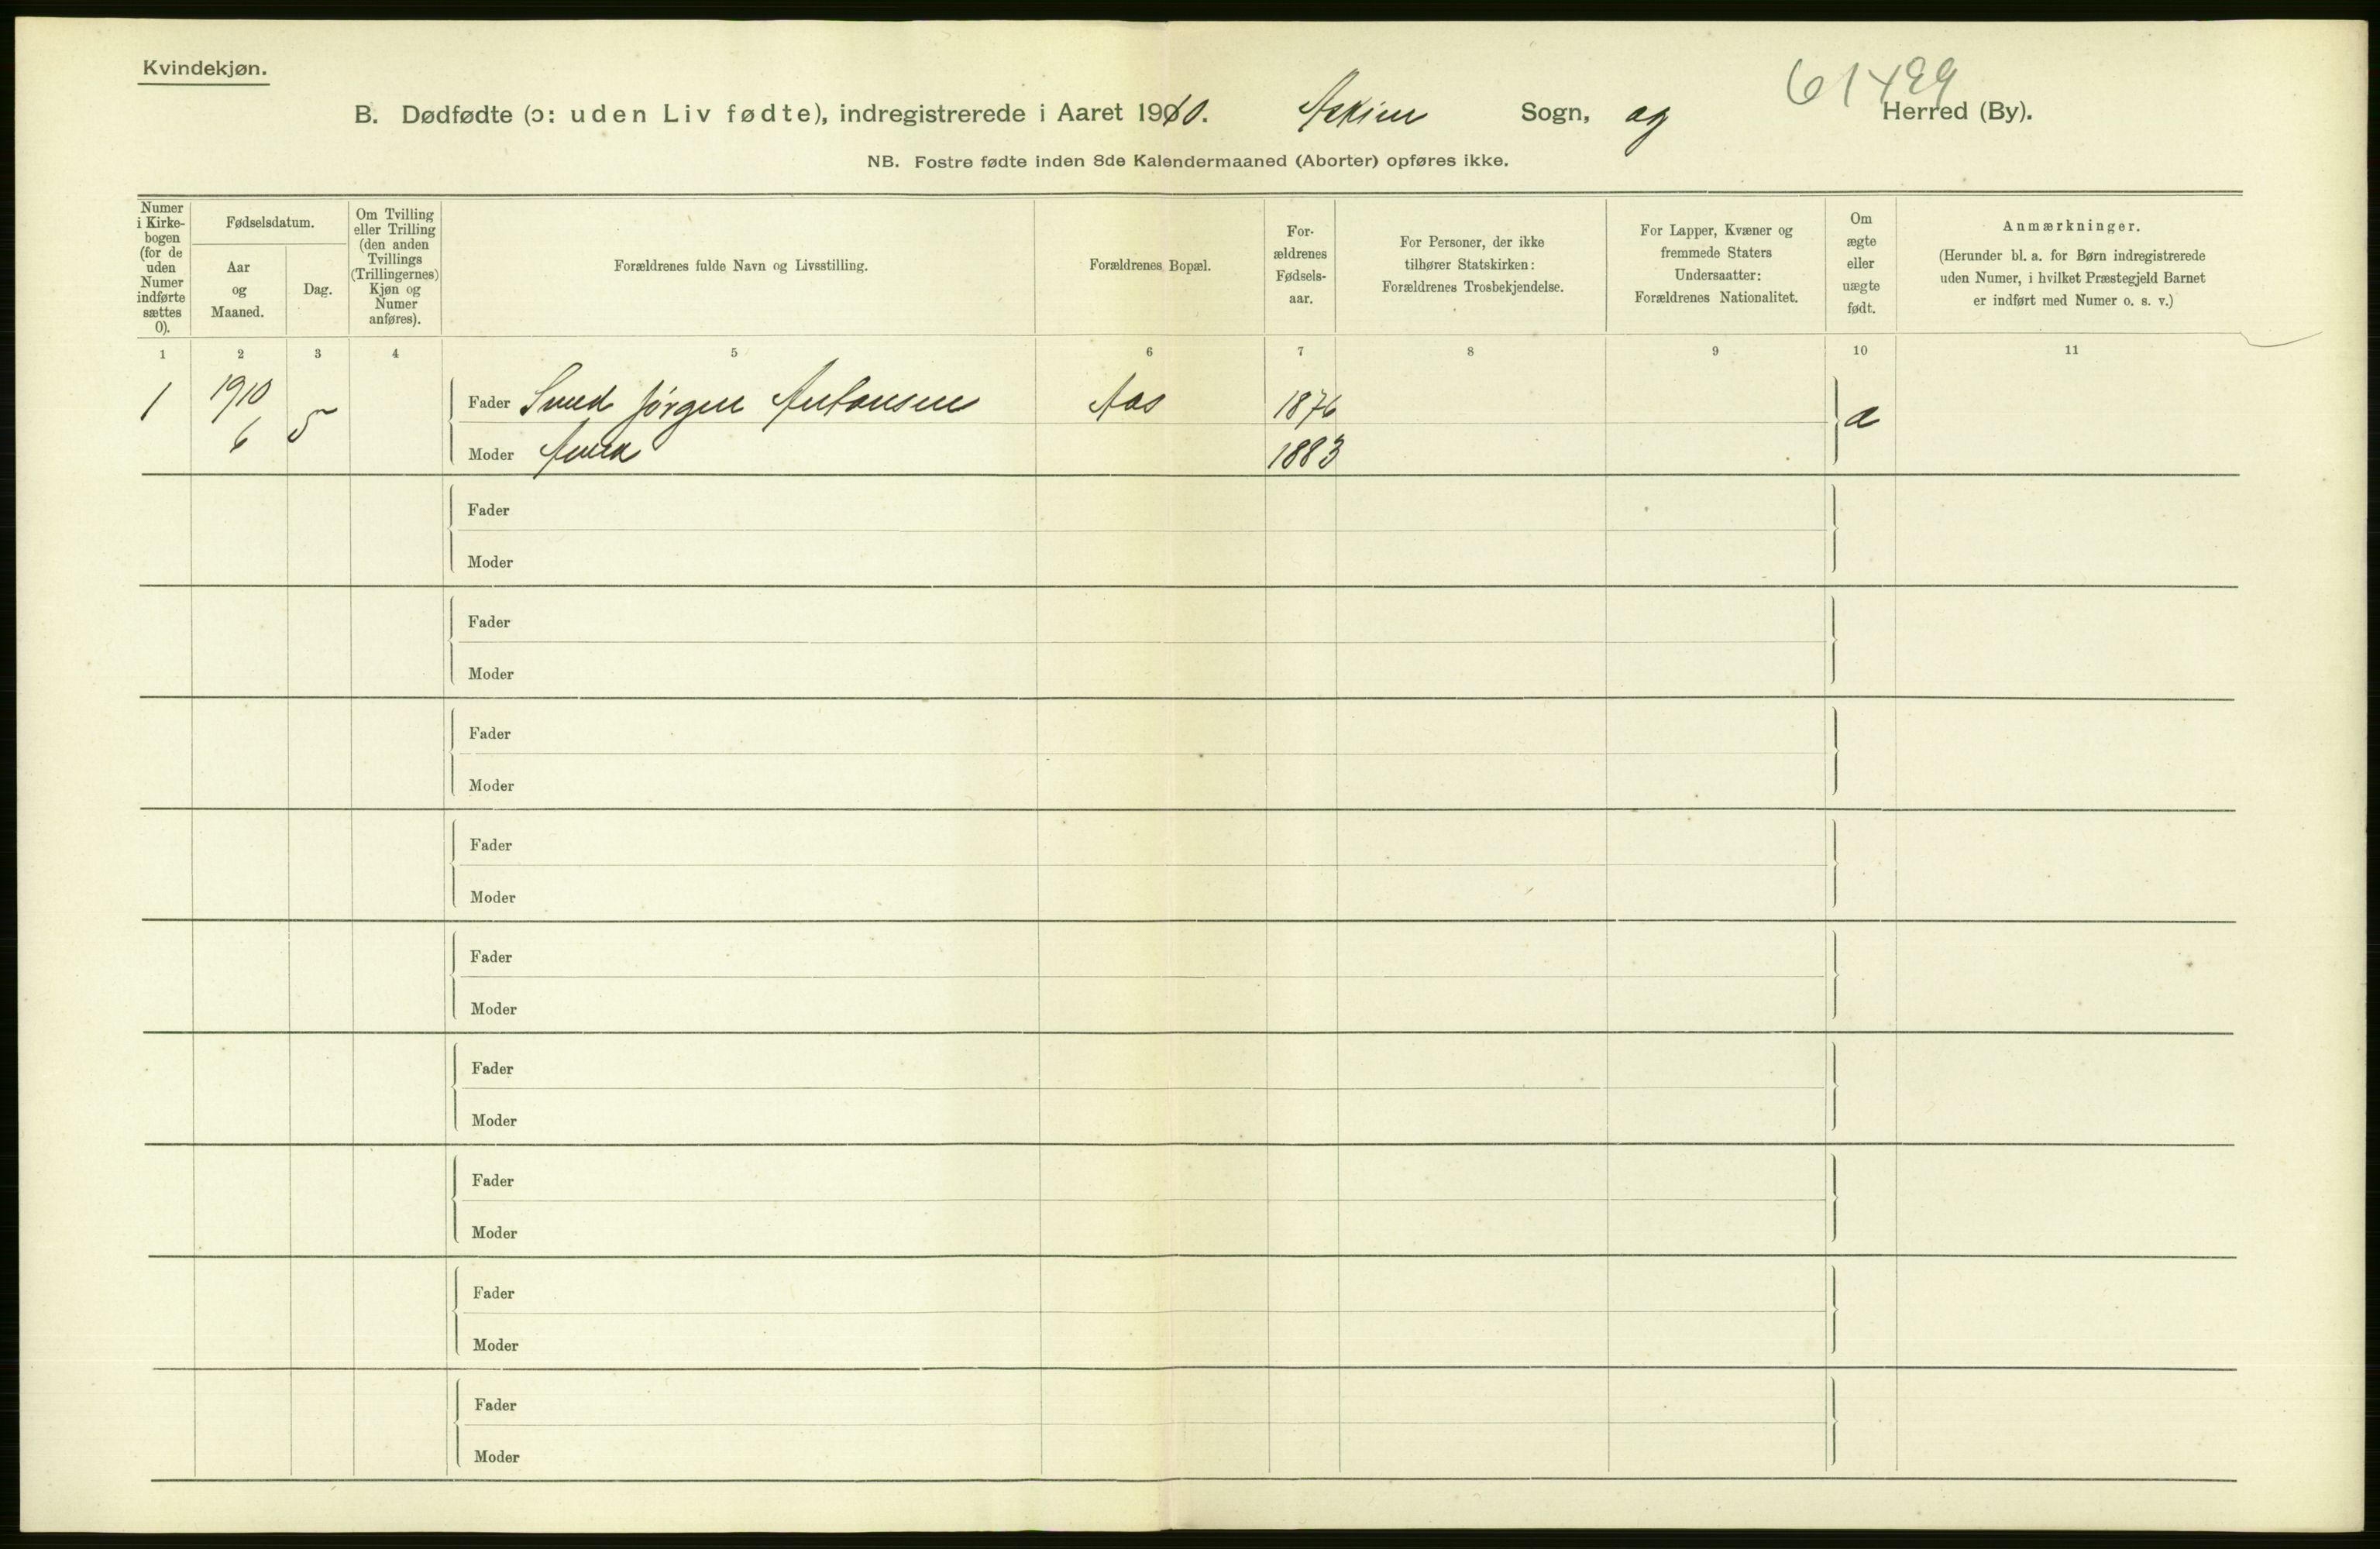 Kvindekjøn.
61499
B. Dødfødte (ɔ: uden Liv fødte), indregistrerede i Aaret 1910. Askim Sogn, og Herred (By).
NB. Fostre fødte inden 8de Kalendermaaned (Aborter) opføres ikke.
Numer i Kirkebogen (for de uden Numer indførte sættes 0).
Fødselsdatum.
Aar og Maaned.
Dag.
Om Tvilling eller Trilling (den anden Tvillings (Trillingernes) Kjøn og Numer anføres).
Forældrenes fulde Navn og Livsstilling.
Forældrenes Bopæl.
Forældrenes Fødselsaar.
For Personer, der ikke tilhører Statskirken: Forældrenes Trosbekjendelse.
For Lapper, Kvæner og fremmede Staters Undersaatter: Forældrenes Nationalitet.
Om ægte eller uægte født.
Anmærkninger.
(Herunder bl. a. for Børn indregistrerede uden Numer, i hvilket Præstegjeld Barnet er indført med Numer o. s. v.)
1 2 3 4 5 6 7 8 9 10 11
1 1910 6 5 Fader Jørgen Antonsen Aas 1876 æ
Moder Anna 1883
Fader
Moder
Fader
Moder
Fader
Moder
Fader
Moder
Fader
Moder
Fader
Moder
Fader
Moder
Fader
Moder
Fader
Moder